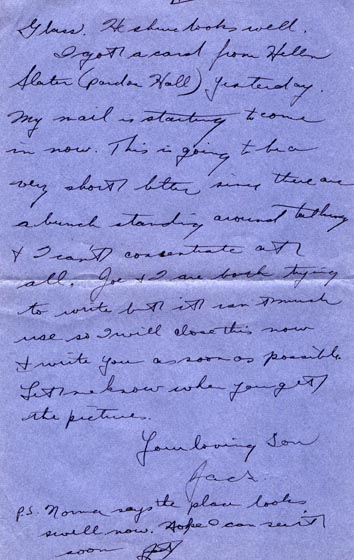 Glass. He shure looks well.
I got a card from Hellen
Slater (Pardon Hall) yesterday.
My mail is starting to come
in now. This is going to be a
very short letter since there are
a bunch standing around talking
& I can't consentrate at
all. Joe & I are both trying
to write but it isn't much
use so I will close this now
& write you as soon as possible.
Let me know when you get
the pictures.
Your loving Son
Jack.
P.S. Norma says the place looks
swell now. Hope I can see it
soon